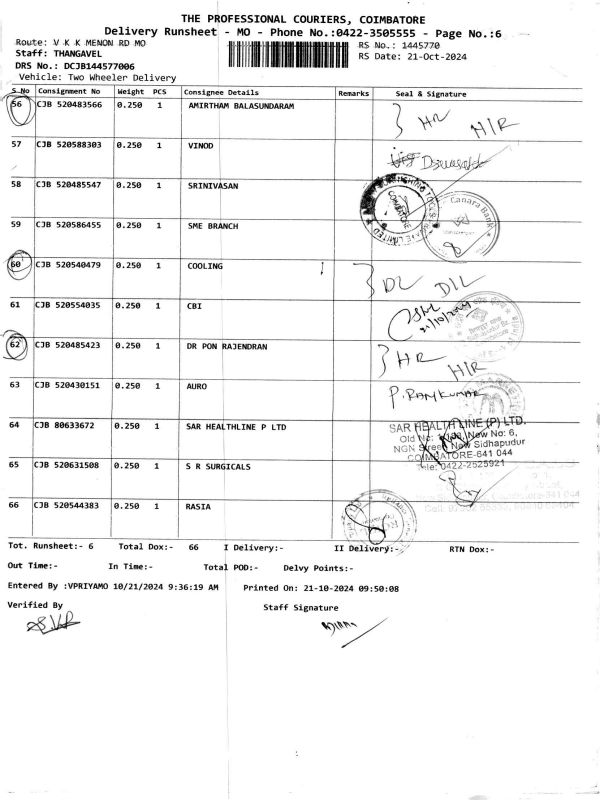 THE PROFESSIONAL COURIERS, COIMBATORE
Delivery Runsheet - MO - Phone No.:0422-3505555 - Page No.:6
Route: V K K MENON RD MO
RS No.: 1445770
Staff: THANGAVEL
RS Date: 21-Oct-2024
DRS No.: DCJB144577006
Vehicle: Two Wheeler Delivery
S No Consignment No Weight PCS Consignee Details Remarks Seal & Signature
56 CJB 520483566 0.250 1 AMIRTHAM BALASUNDARAM HR H/R
57 CJB 520588303 0.250 1 VINOD
58 CJB 520485547 0.250 1 SRINIVASAN
59 CJB 520586455 0.250 1 SME BRANCH Canara Bank
60 CJB 520540479 0.250 1 COOLING DL D/L
61 CJB 520554035 0.250 1 CBI
62 CJB 520485423 0.250 1 DR PON RAJENDRAN HR H/R
63 CJB 520430151 0.250 1 AURO P. RAMKUMAR
64 CJB 80633672 0.250 1 SAR HEALTHLINE P LTD SAR HEALTH LINE (P) LTD.
Old No: New No: 6,
NGN Street New Sidhapudur
COIMBATORE-641 044
Tele: 0422-2525921
65 CJB 520631508 0.250 1 S R SURGICALS
66 CJB 520544383 0.250 1 RASIA
Tot. Runsheet:- 6 Total Dox:- 66 I Delivery:- II Delivery:- RTN Dox:-
Out Time:- In Time:- Total POD:- Delvy Points:-
Entered By :VPRIYAMO 10/21/2024 9:36:19 AM Printed On: 21-10-2024 09:50:08
Verified By Staff Signature